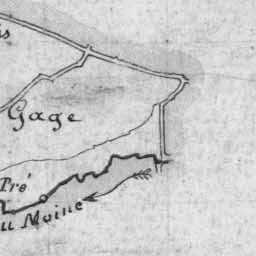 is
Gage
Pré
du Moine